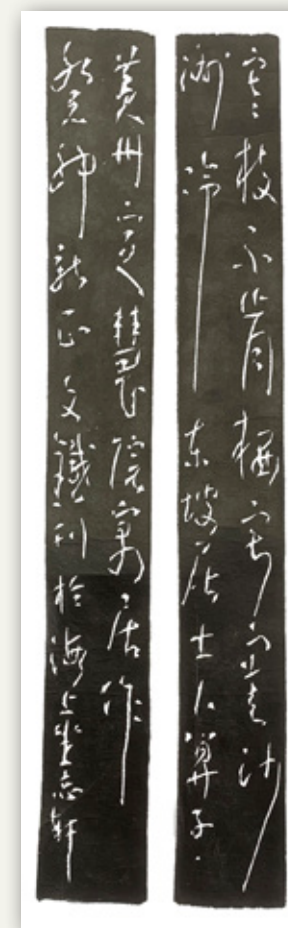 寒枝不肯棲寂寞沙
洲冷 东坡居士卜算子
黄州定慧院寓居作
文鐵刊於海上坐忘軒